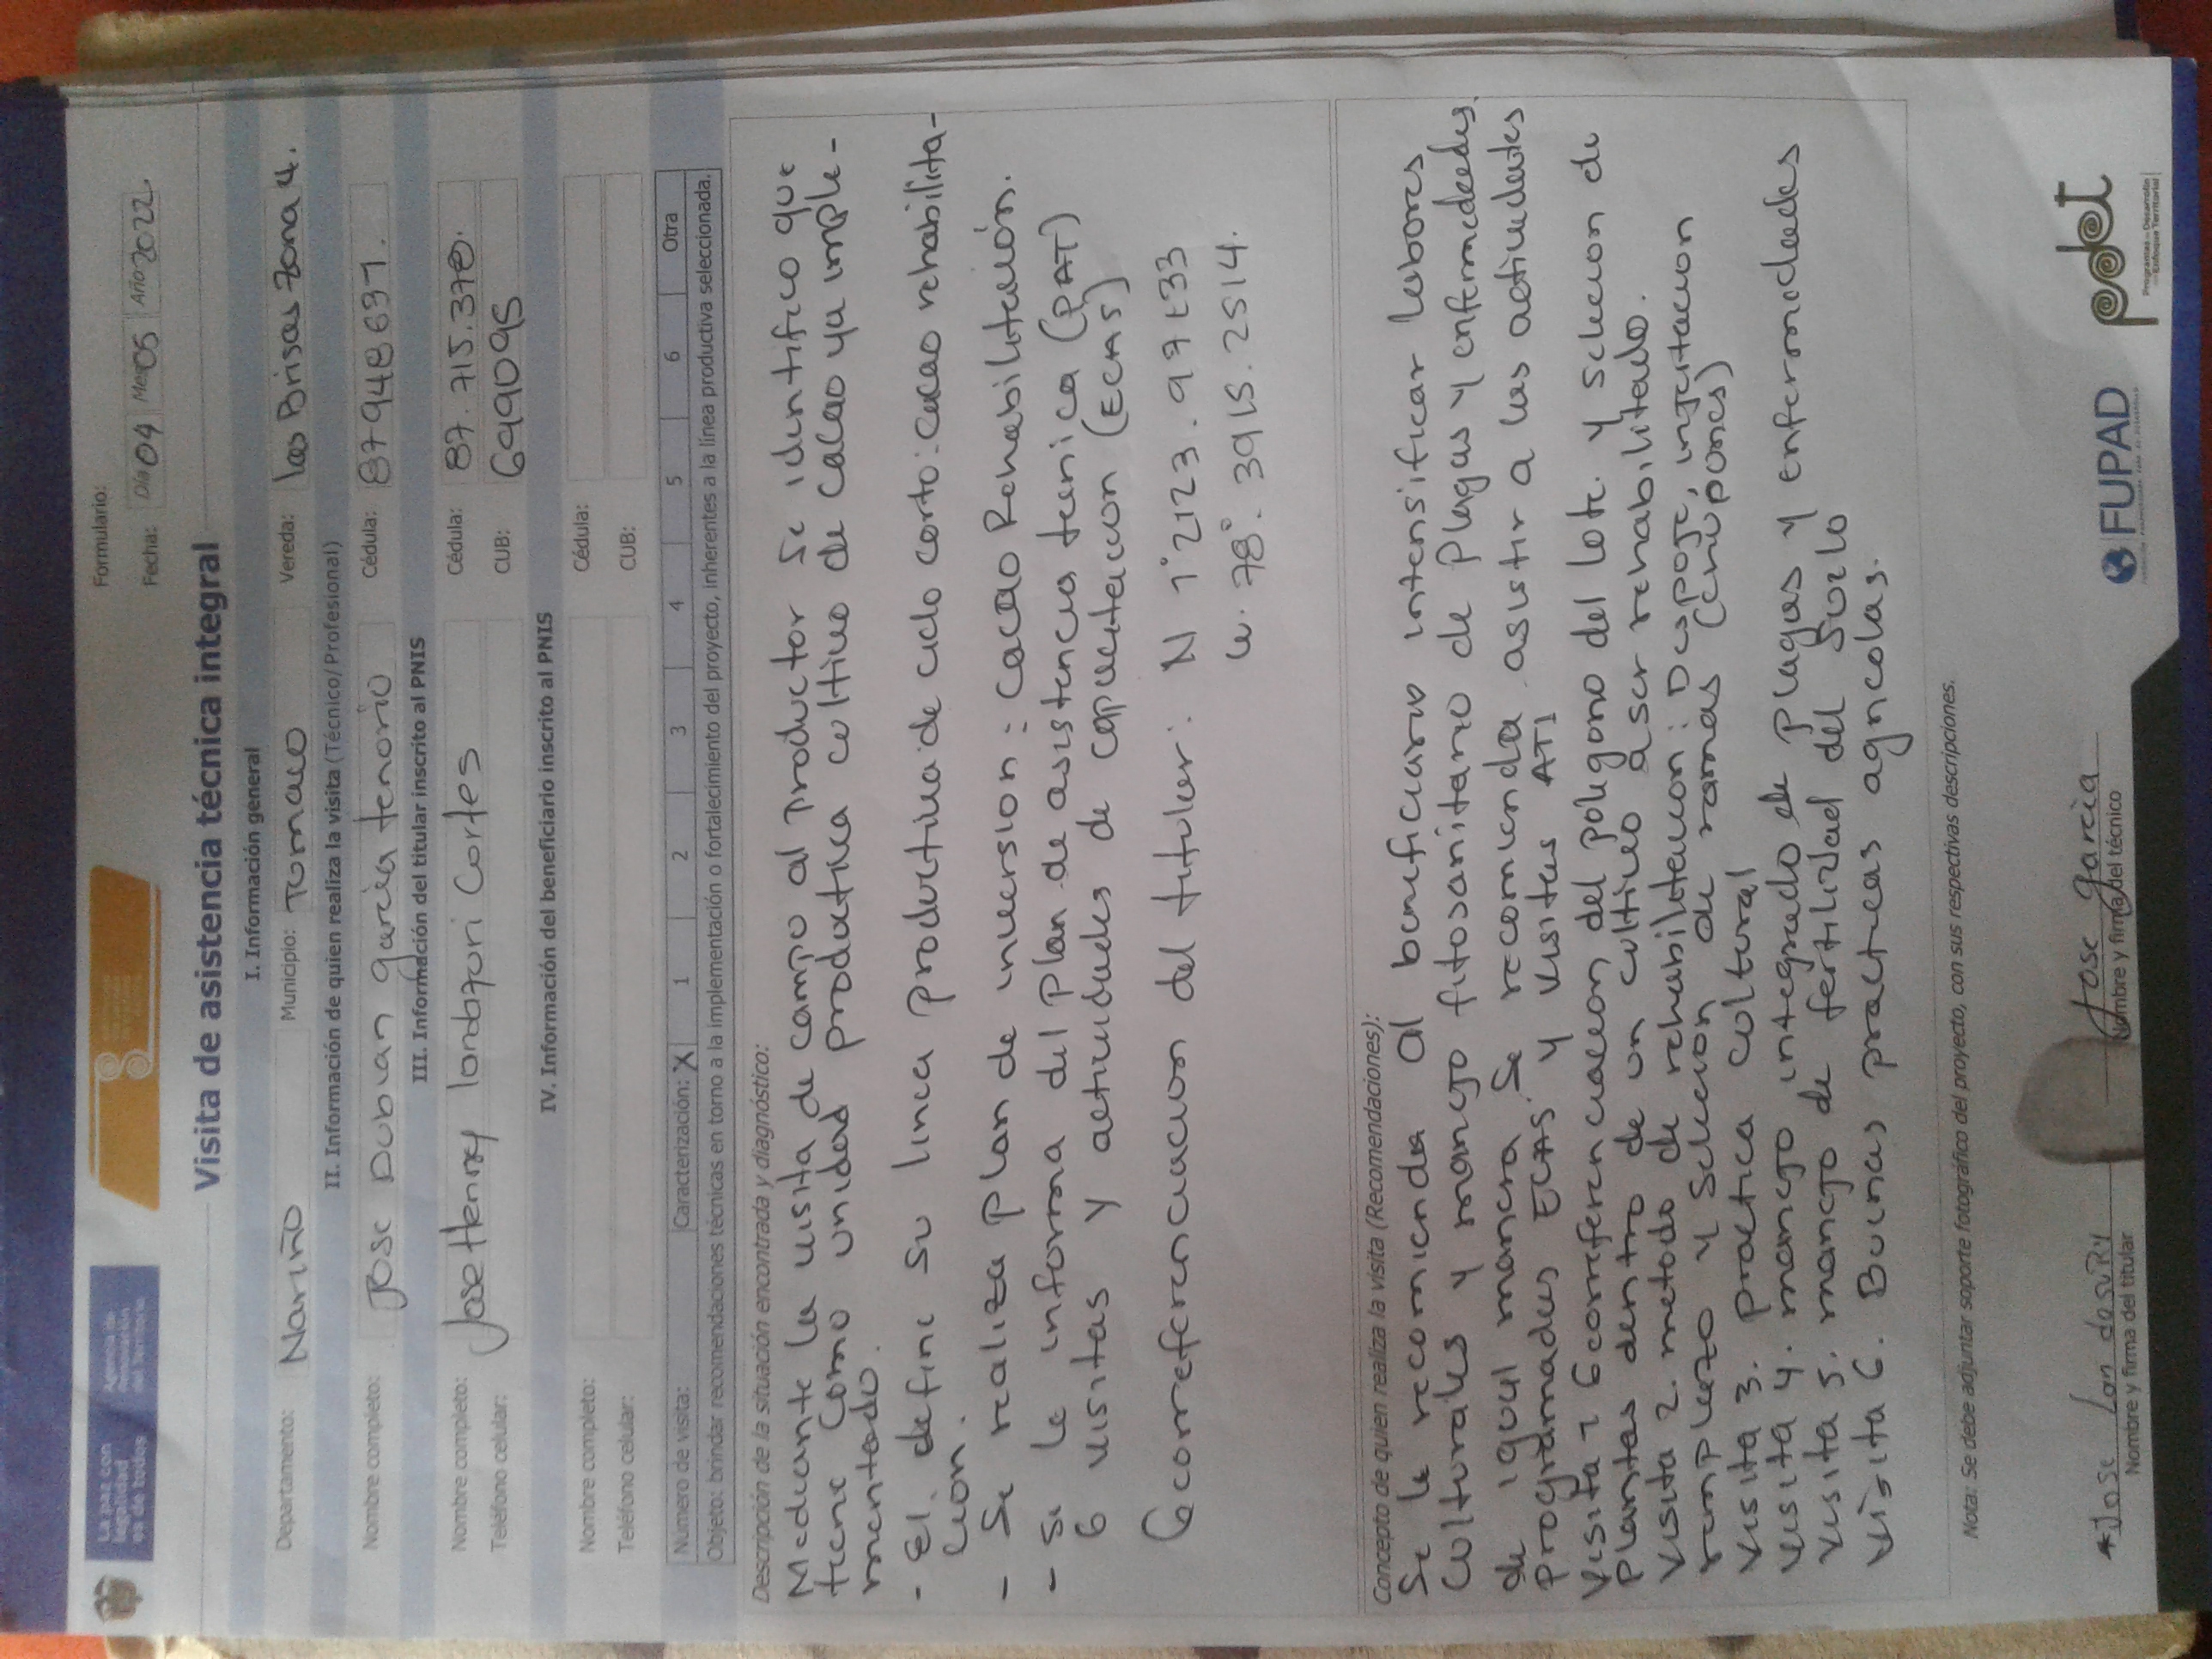 La paz con
legalidad
es de todos
Agencia de
Renovación
del Territorio
Formulario:
Fecha: Día 04 Mes 05 Año 2022.
Visita de asistencia técnica integral
I. Información general
Departamento: Nariño Municipio: Tumaco Vereda: las Brisas zona 4.
II. Información de quien realiza la visita (Técnico/Profesional)
Nombre completo: Jose Duban garcia tenorio Cédula: 87948637.
III. Información del titular inscrito al PNIS
Nombre completo: Jose Henrry londazuri Cortes Cédula: 87.715.370.
Teléfono celular: CUB: 699095
IV. Información del beneficiario inscrito al PNIS
Nombre completo: Cédula:
Teléfono celular: CUB:
Número de visita: Caracterización: X 1 2 3 4 5 6 Otra
Objeto: brindar recomendaciones técnicas en torno a la implementación o fortalecimiento del proyecto, inherentes a la línea productiva seleccionada.
Descripción de la situación encontrada y diagnóstico:
Mediante la visita de campo al productor Se identifico que
tiene como unidad productiva cultivo de cacao ya imple-
mentado.
- El. define su linea productiva de ciclo corto: cacao rehabilita-
cion.
- Se realiza plan de inversion: cacao Rehabilitación.
- se le informa del plan de asistencia tecnica (PAT)
6 visitas y actividades de capacitacion (ECAS)
Georreferenciacion del titular: N 1°2123.97233
W. 78°.3915.2514.
Concepto de quien realiza la visita (Recomendaciones):
Se le recomienda al beneficiario intensificar labores
culturales y manejo fitosanitario de plagas y enfermedades.
de igual manera se recomienda asistir a las actividades
programadas ECAS y visitas ATI
Visita 1 Georreferenciacion del poligono del lote. y seleccion de
plantas dentro de un cultivo a ser rehabilitado.
Visita 2. metodo de rehabilitacion: Despoje, injertacion
remplazo y selección de ramas (chupones)
Visita 3. practica cultural
visita 4. manejo integrado de plagas y enfermedades
visita 5. manejo de fertilidad del Suelo
visita 6. Buenas practicas agricolas.
Nota: Se debe adjuntar soporte fotográfico del proyecto, con sus respectivas descripciones.
Jose garcia
Nombre y firma del titular Nombre y firma del técnico
FUPAD
pdet
Programas de Desarrollo
con Enfoque Territorial